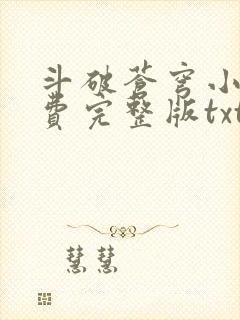 斗破苍穹小
费完整版txt
慧慧